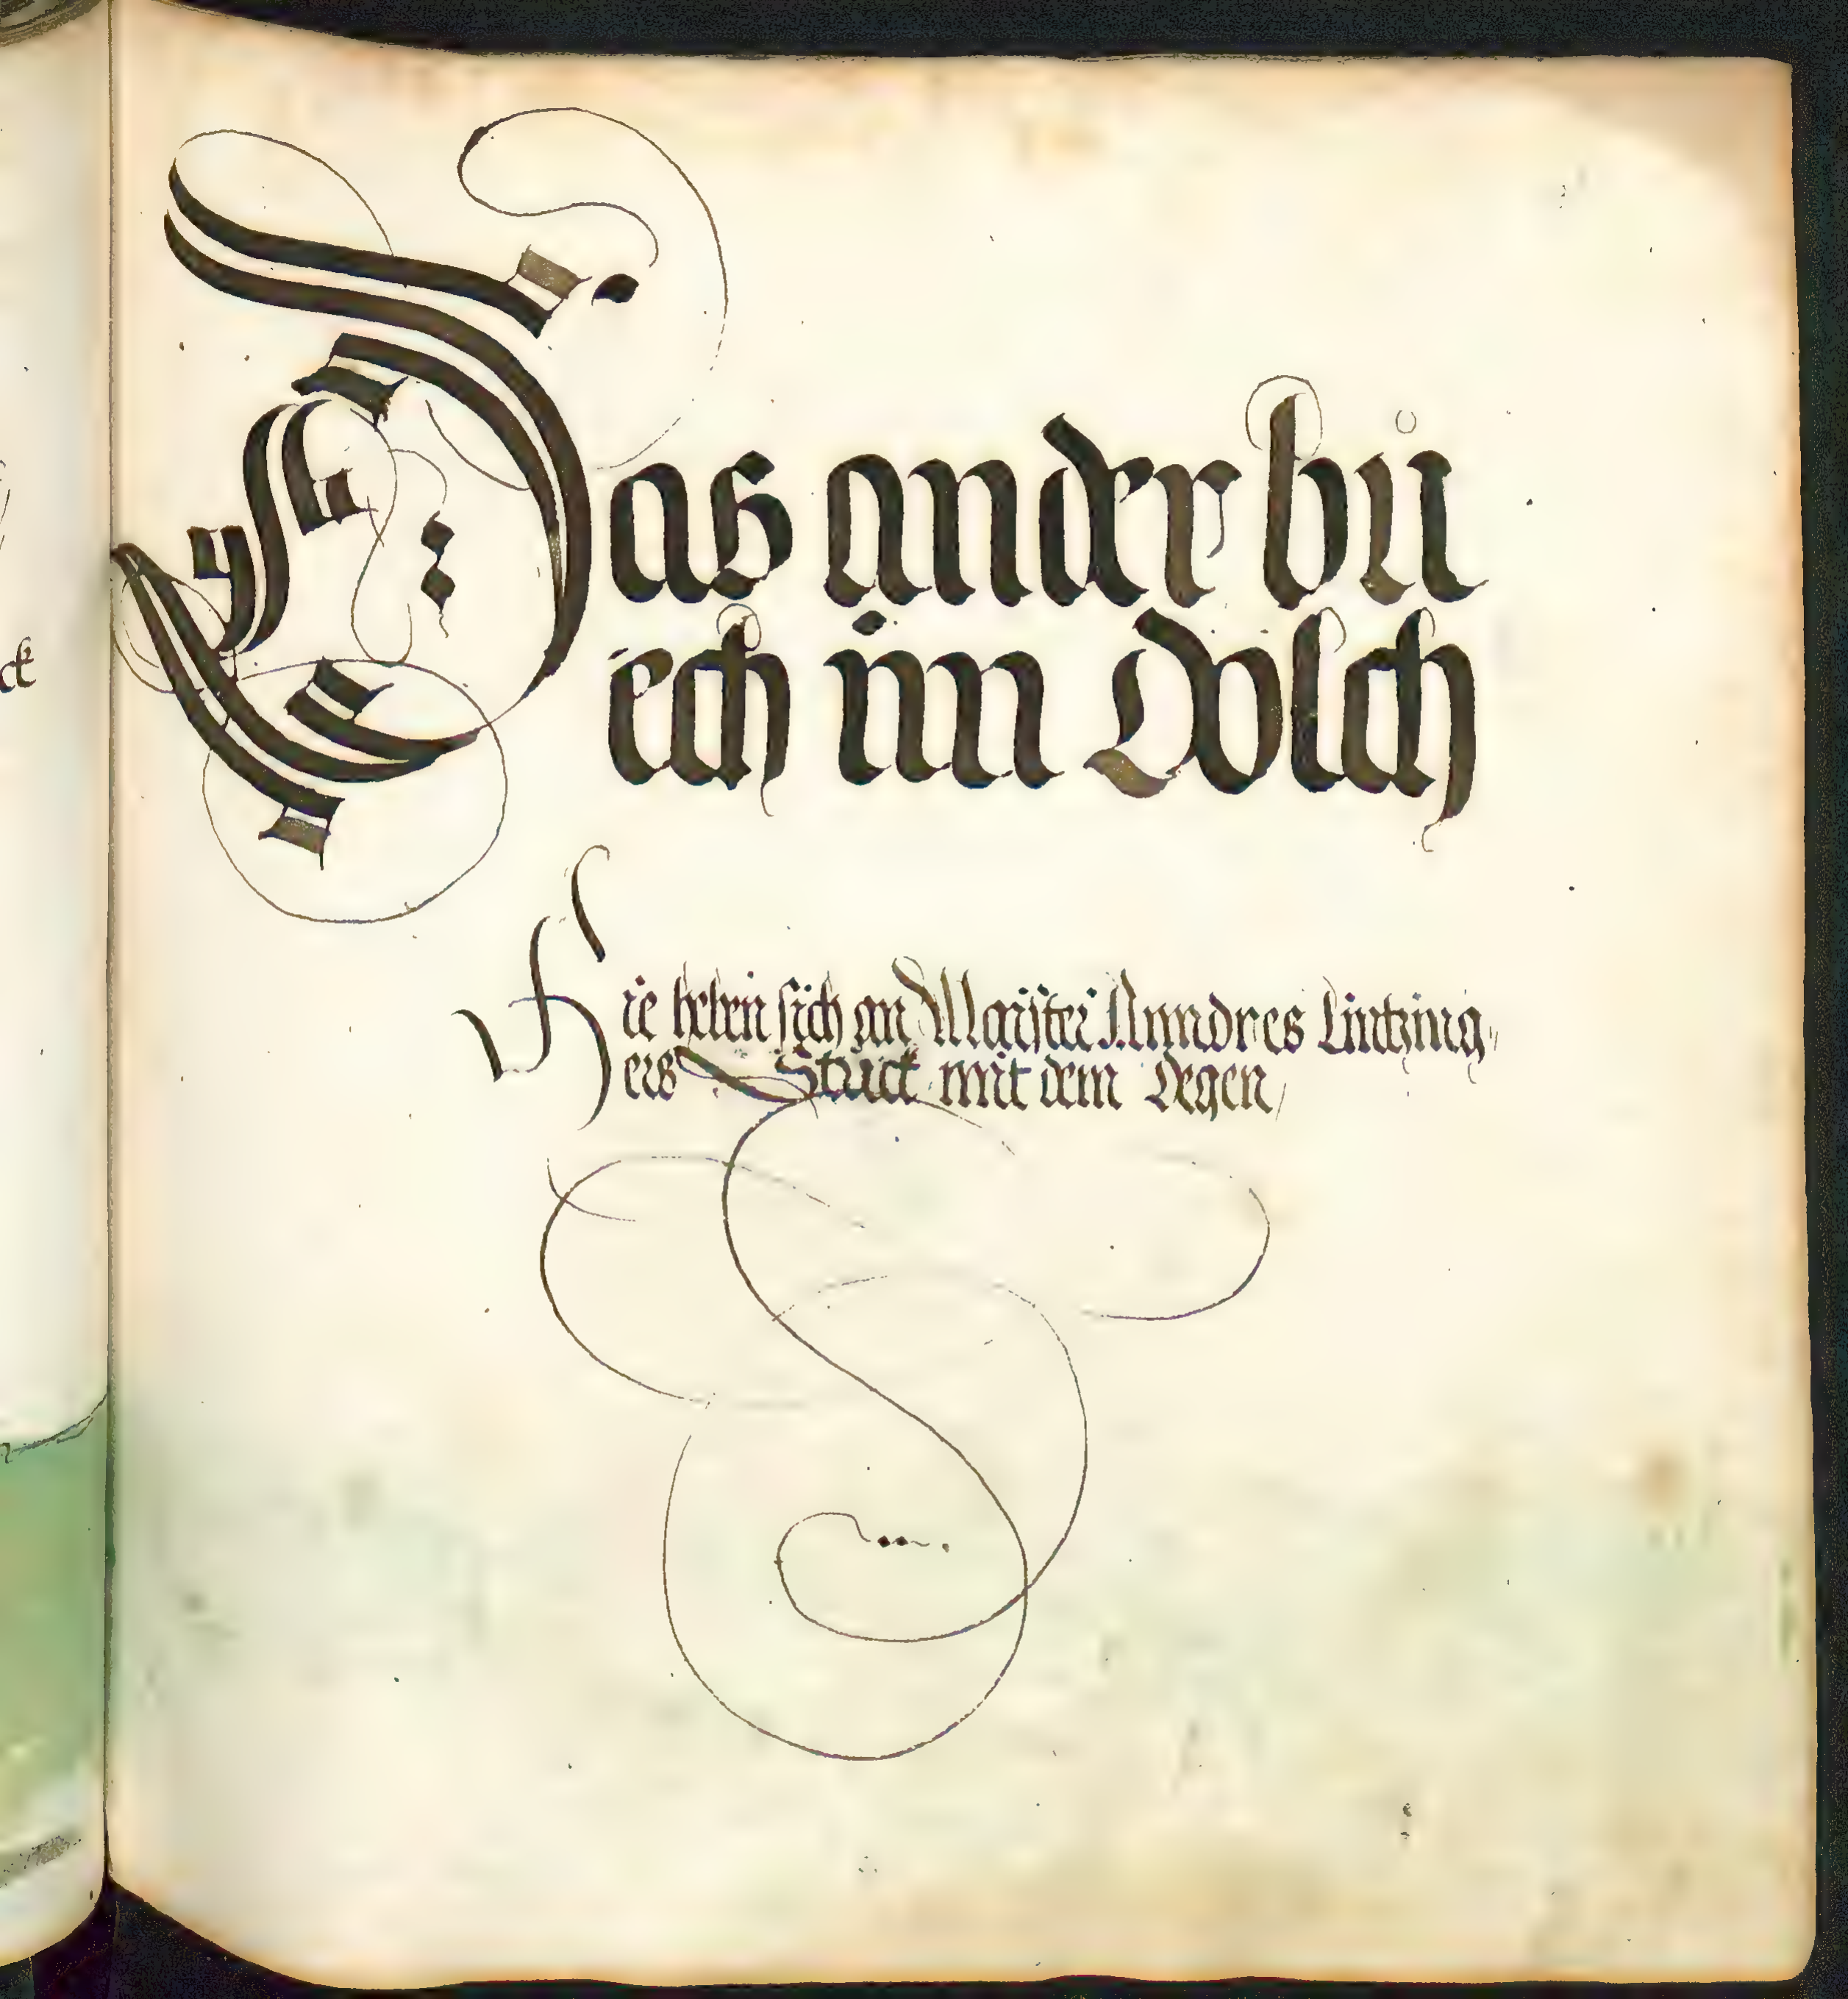 Das ander bů
ech im Dolch
Hie heben sich an Maister Anndres Lintzing,
ers Stuck mit dem Degen,